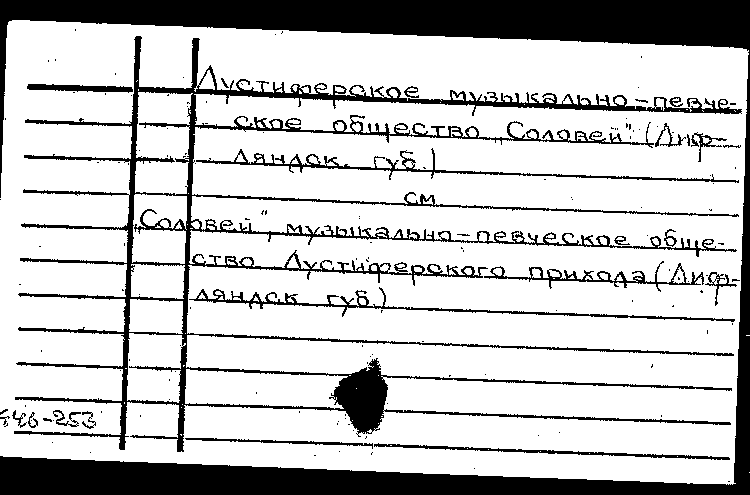 Лустиферское музыкально-певче-
ское общество "Соловей" (Лиф-
ляндск. губ.)
см
"Соловей", музыкально-певческое обще-
ство Лустиферского прихода (Лиф-
ляндск губ.)
446-253